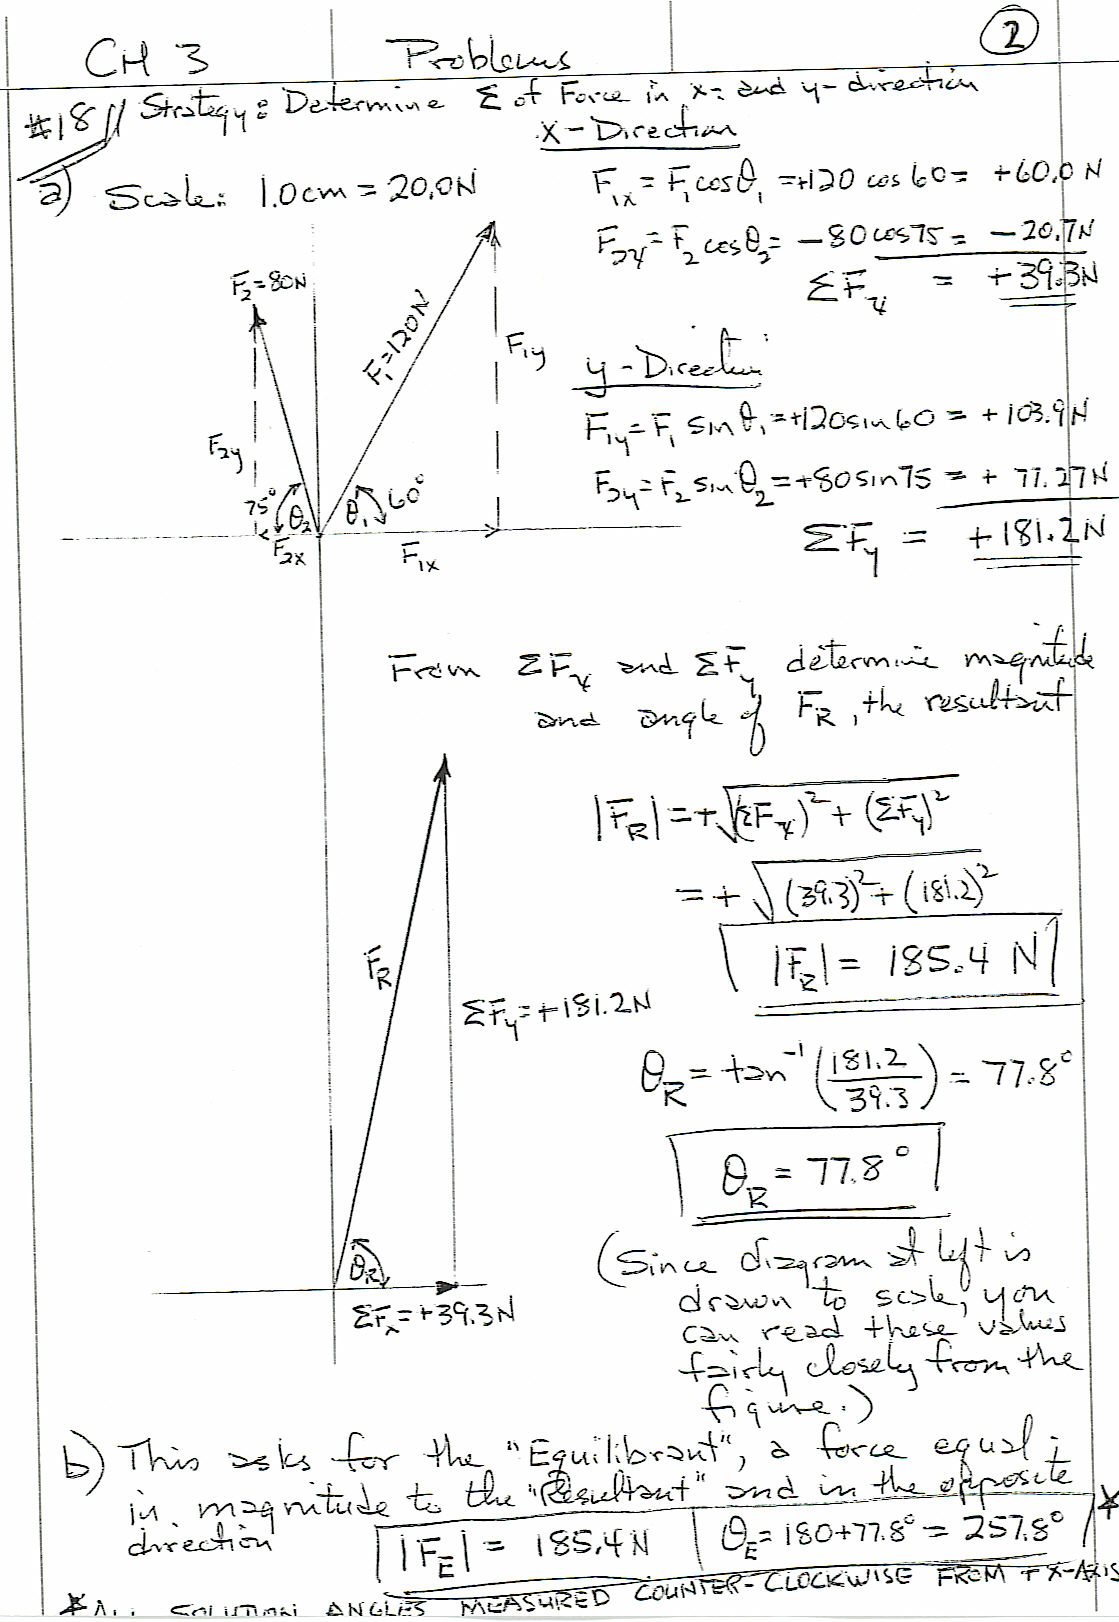 CH 3 Problems 2
#18// Strategy: Determine Σ of Force in x- and y-direction
X-Direction
a) Scale: 1.0cm = 20.0N
F1x = F1 cosθ1 = +120 cos 60 = +60.0 N
F2x = F2 cosθ2 = -80 cos75 = -20.7N
ΣFx = +39.3N
F2=80N
F1=120N
F1y
F2y
75°
θ2
θ1
60°
F2x
F1x
y-Direction
F1y = F1 sinθ1 = +120sin60 = +103.9N
F2y = F2 sinθ2 = +80sin75 = + 77.27N
ΣFy = +181.2N
From ΣFx and ΣFy determine magnitude
and angle of FR, the resultant
|FR| = +√(ΣFx)² + (ΣFy)²
= +√(39.3)² + (181.2)²
|FR| = 185.4 N
FR
ΣFy = +181.2N
θR
ΣFx = +39.3N
θR = tan⁻¹(181.2/39.3) = 77.8°
θR = 77.8°
(Since diagram at left is
drawn to scale, you
can read these values
fairly closely from the
figure.)
b) This asks for the "Equilibrant", a force equal
in magnitude to the "Resultant" and in the opposite
direction
|FE| = 185.4N θE = 180+77.8° = 257.8° *
* ALL SOLUTION ANGLES MEASURED COUNTER-CLOCKWISE FROM + X-AXIS